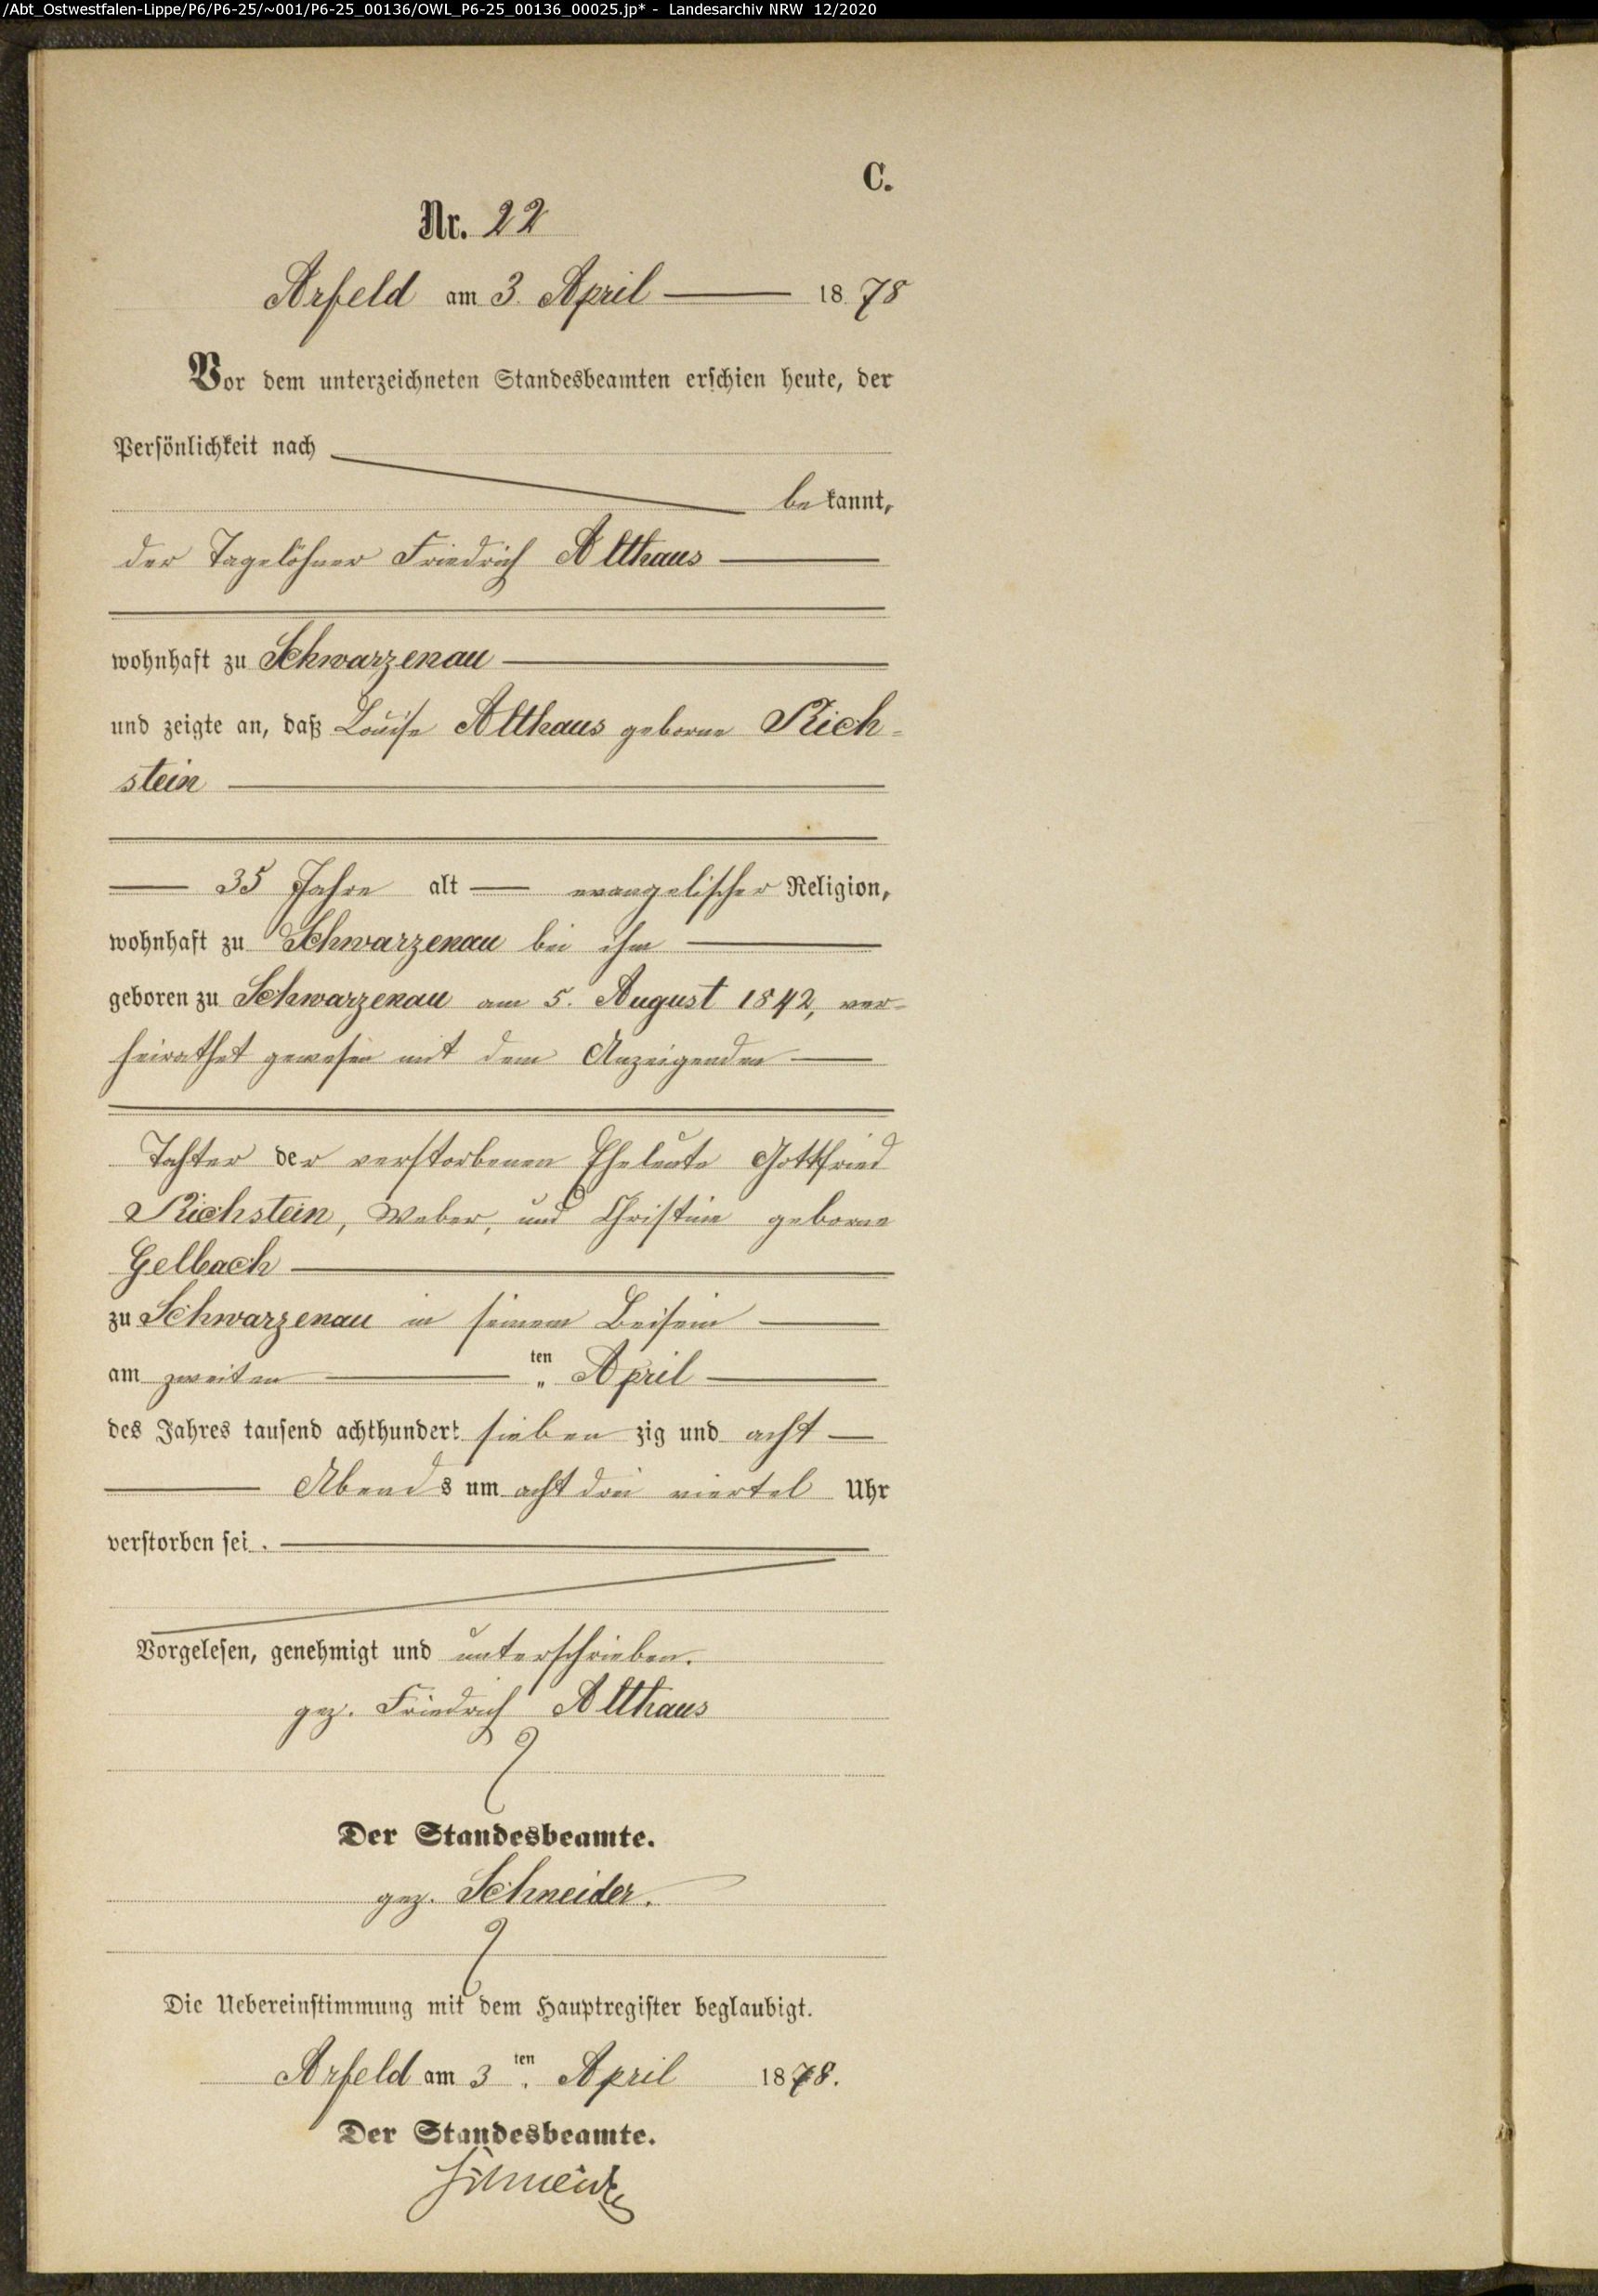 /Abt_Ostwestfalen-Lippe/P6/P6-25/~001/P6-25_00136/OWL_P6-25_00136_00025.jp* - Landesarchiv NRW 12/2020
C.
Nr. 22
Arfeld am 3. April 1878
Vor dem unterzeichneten Standesbeamten erschien heute, der
Persönlichkeit nach
bekannt,
der Tagelöhner Friedrich Althaus
wohnhaft zu Schwarzenau
und zeigte an, daß Louise Althaus geborne Rich-
stein
35 Jahre alt evangelischer Religion,
wohnhaft zu Schwarzenau bei ihm
geboren zu Schwarzenau am 5. August 1842, ver-
heirathet gewesen mit dem Anzeigenden
Tochter der verstorbenen Eheleute Gottfried
Richstein, Weber, und Christine geborne
Gelbach
zu Schwarzenau in seinem Beisein
am zweiten ten April
des Jahres tausend achthundert siebenzig und acht
Abends um acht drei viertel Uhr
verstorben sei.
Vorgelesen, genehmigt und unterschrieben.
gez. Friedrich Althaus
Der Standesbeamte.
gez. Schneider.
Die Uebereinstimmung mit dem Hauptregister beglaubigt.
Arfeld am 3ten April 1878.
Der Standesbeamte.
Schneider